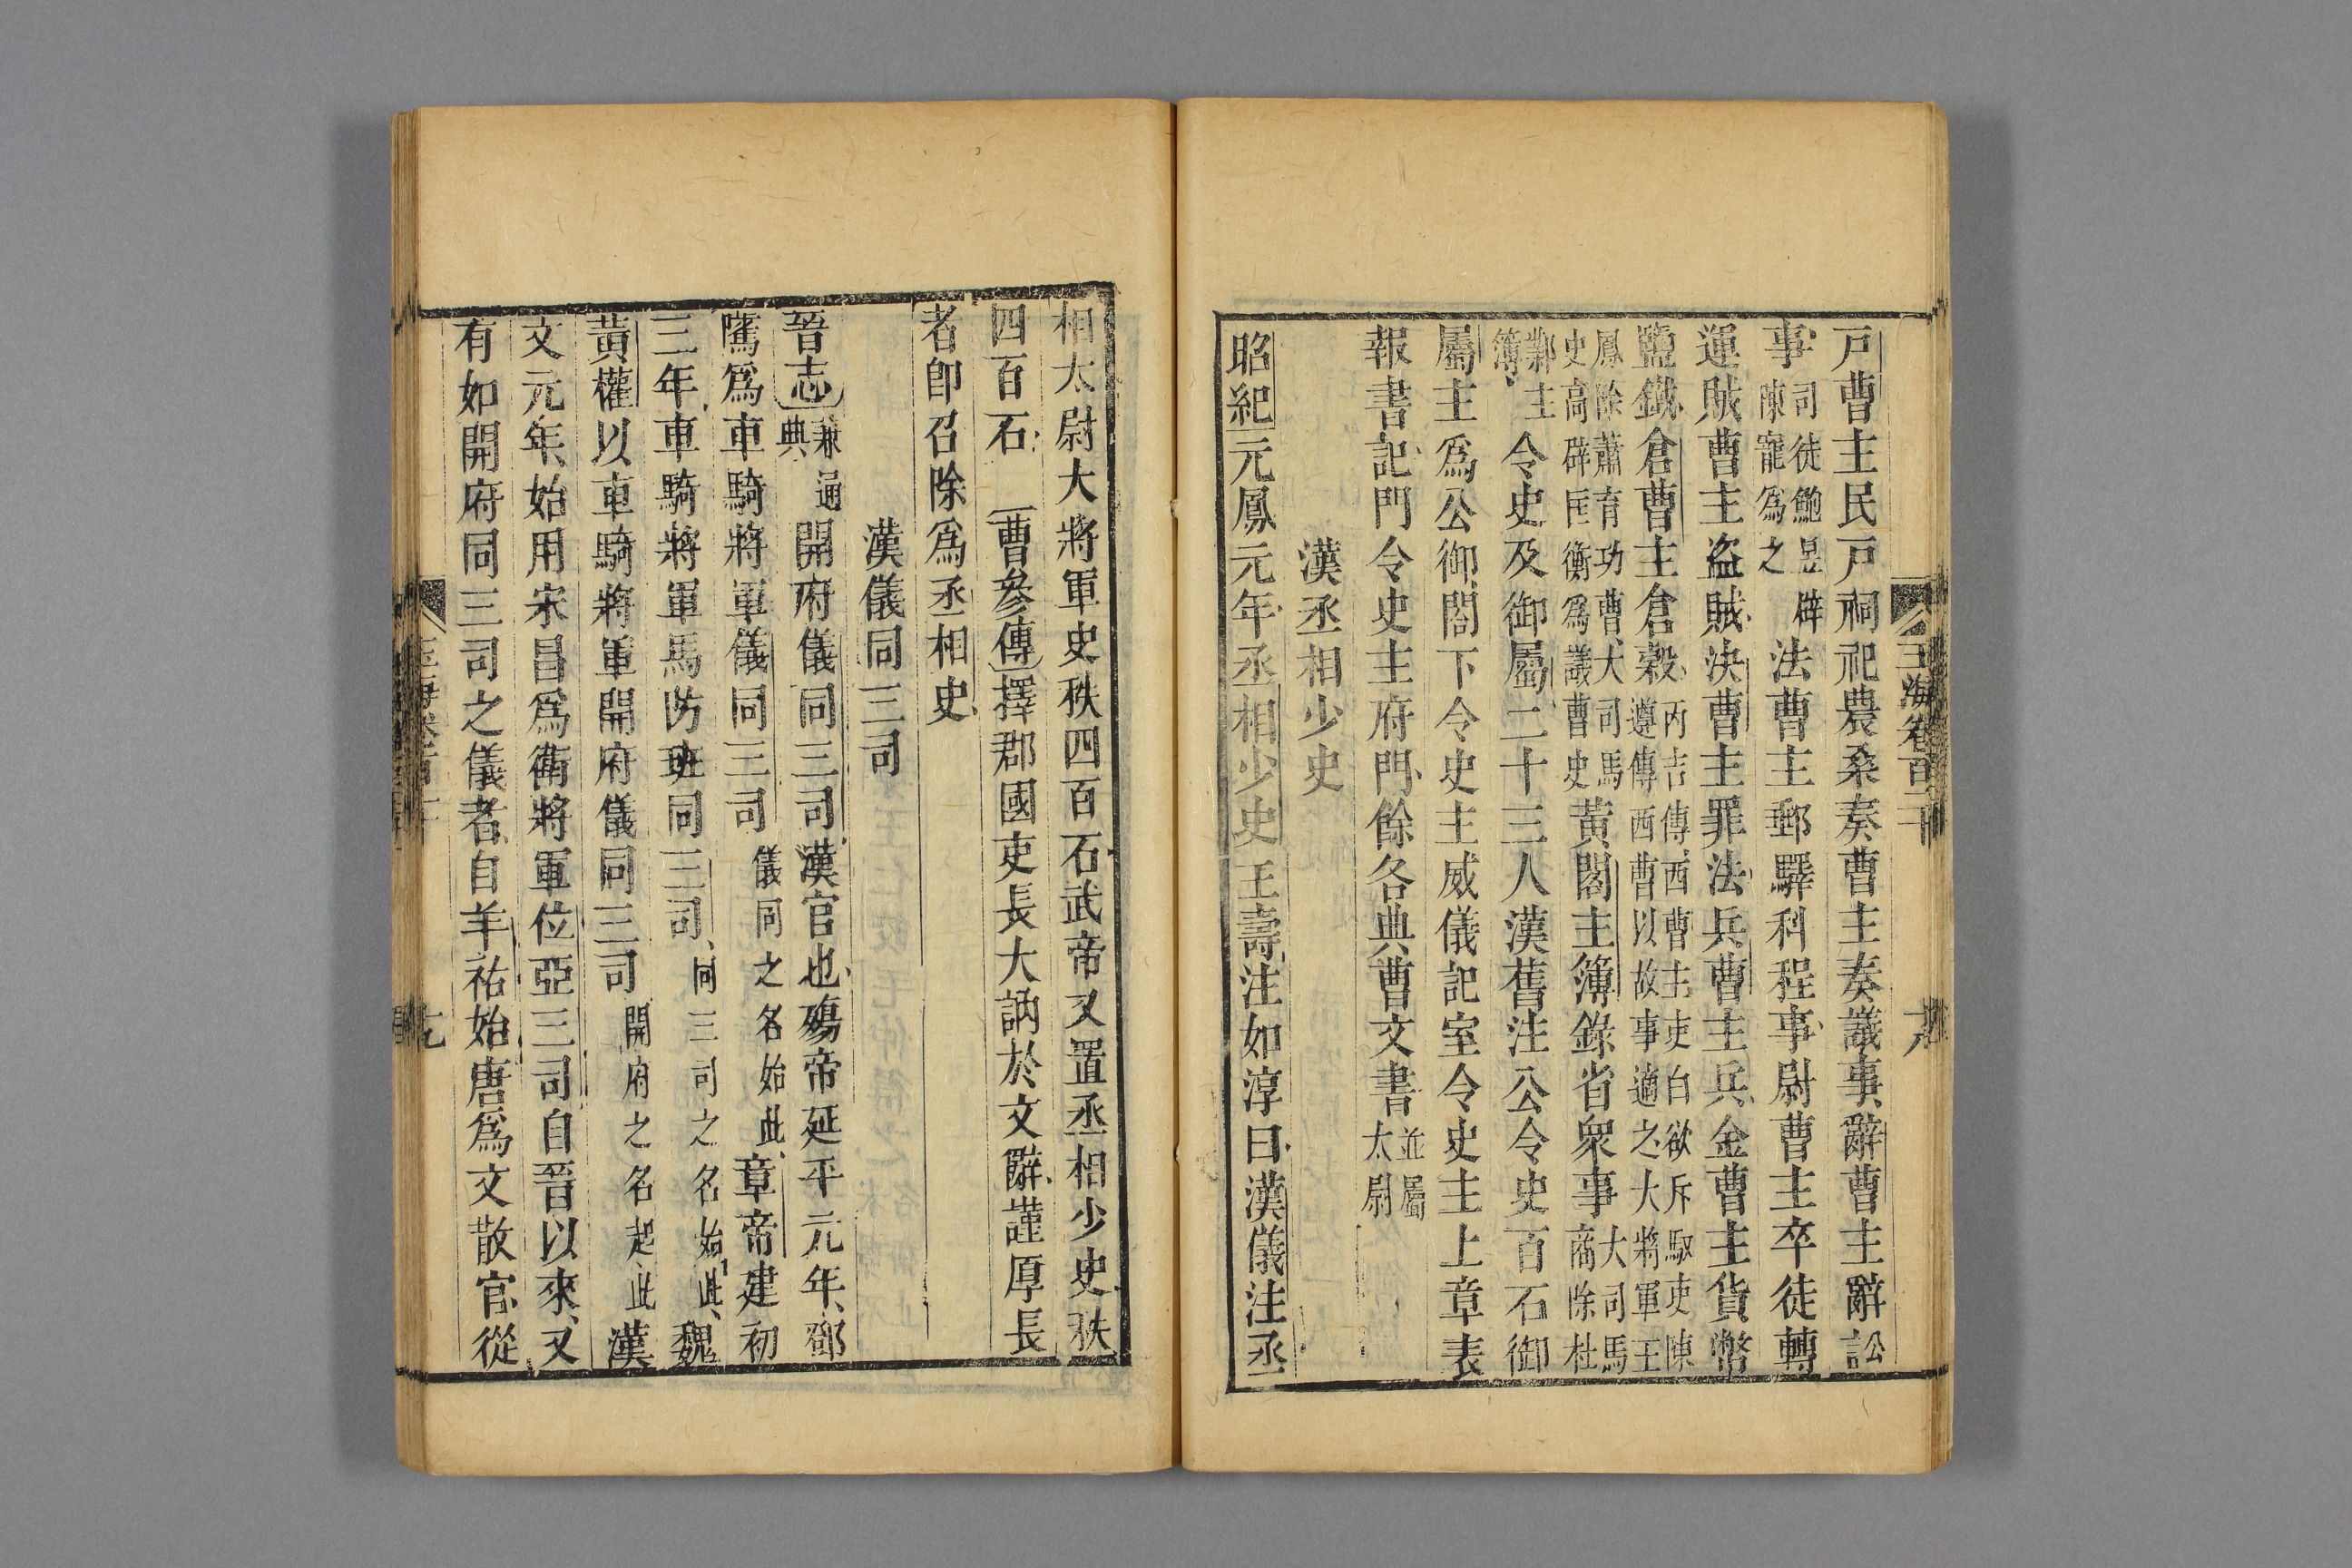 玉海卷百二十
戸曹主民戸祠祀農桑奏曹主奏議事辭曹主辭訟
事司徒鮑昱辟陳寵爲之法曹主郵驛科程事尉曹主卒徒轉
運賊曹主盗賊決曹主罪法兵曹主兵金曹主貨幣
鹽鐵倉曹主倉穀丙吉傳西曹主吏白欲斥馭吏陳遵傳西曹以故事適之大將軍王
鳳除蕭育功曹大司馬史高辟匡衡爲議曹史黃閣主簿錄省衆事大司馬商除杜
鄴主簿令史及御屬二十三人漢舊注公令史百石御
屬主爲公御閤下令史主威儀記室令史主上章表
報書記門令史主府門餘各典曹文書並屬太尉
漢丞相少史
昭紀元鳳元年丞相少史王壽注如淳曰漢儀注丞
相太尉大將軍史秩四百石武帝又置丞相少史秩
四百石曹參傳擇郡國吏長大訥於文辭謹厚長
者卽召除爲丞相史
漢儀同三司
晉志兼通典開府儀同三司漢官也殤帝延平元年鄧
騭爲車騎將軍儀同三司儀同之名始此章帝建初
三年車騎將軍馬防班同三司同三司之名始此魏
黃權以車騎將軍開府儀同三司開府之名起此漢
文元年始用宋昌爲衞將軍位亞三司自晉以來又
有如開府同三司之儀者自羊祜始唐爲文散官從